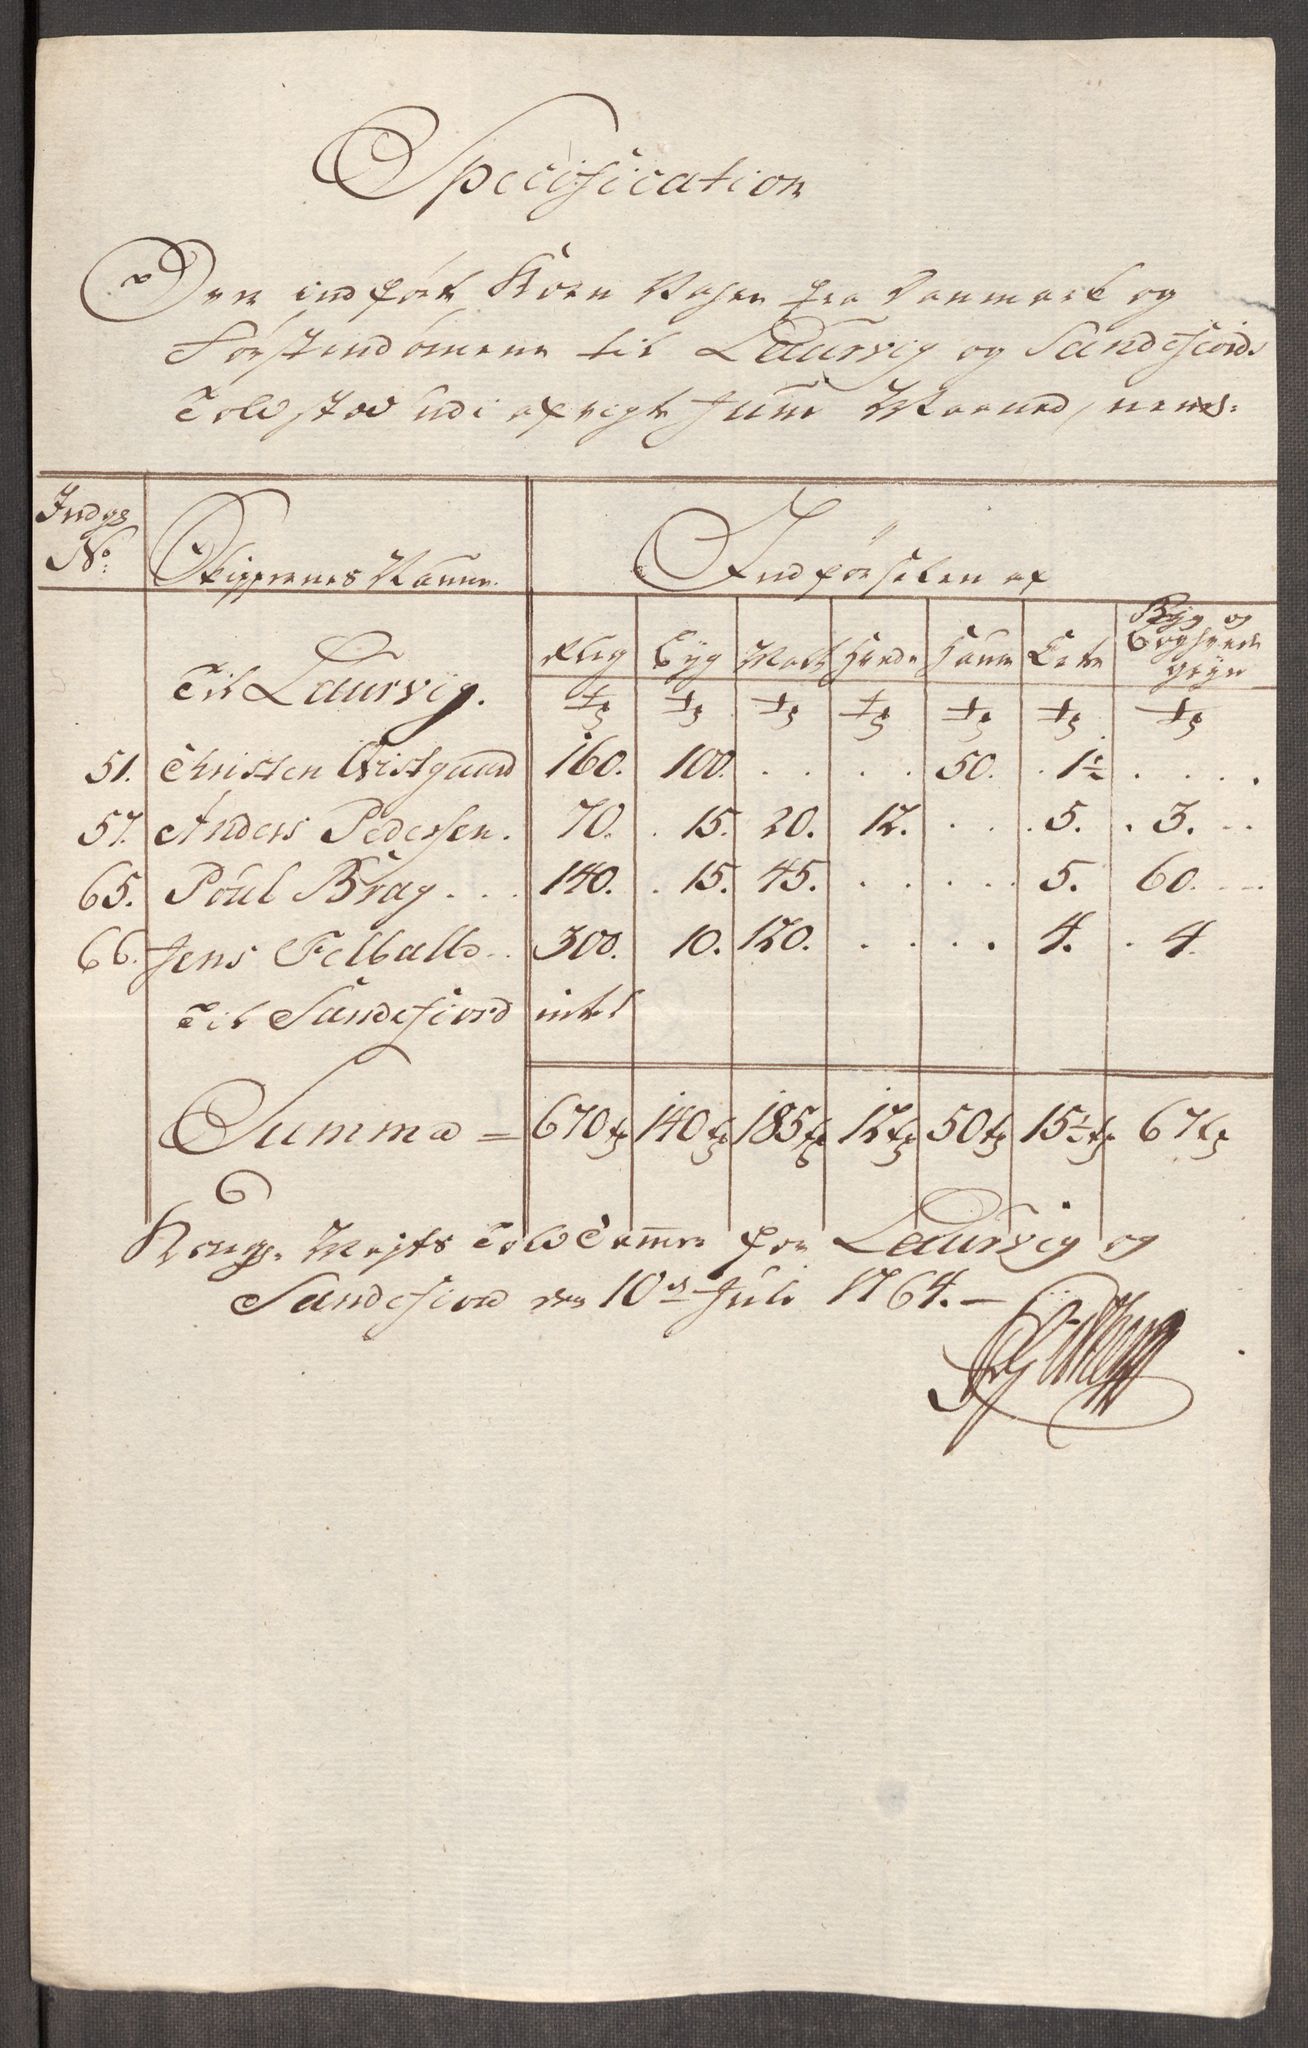 Specification
Over indført Korn Vahre fra Danmark og
Førstendømene til Laurvig og Sandefiords
Told stæd udi afvigte Junii Maaned, nemlig:
Indgs No:
Skippernes Nafne.
Indførselen af
Til Laurvig.
Rug Byg Malt Hvede Hafre Erter Byg og Boghvede gryn
tr tr tr tr tr tr tr
51. Christen Qvistgaard 160. 100. . . . . 50. . 1½ . . . .
57. Anders Pedersen. 70. . 15. 20. 12. . . . 5. . 3. . .
65. Poul Brag . . . 140. . 15. 45. . . . . . 5. 60. . . .
66. Jens Felballe . . 300. 10. 120. . . . . 4. . 4.
Til Sandefiord intet
Summa = 670 tr 140 tr 185 tr 12 tr 50 tr 15½ tr 67 tr
Kongl. Mayts Told Cammer for Laurvig og
Sandefiord den 10de Julii 1764. –